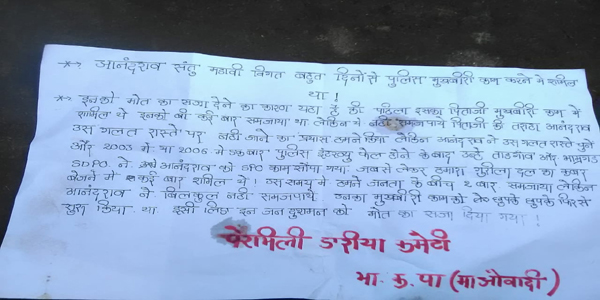 -**- आनंदराव संतु मडावी विगत बहुत दिनोसे पुलिस मुखबीरी काम करने मे शामिल
था !
** इनको मौत का सजा देने का कारण यहा है की पहिला इसका पिताजी मुखबीरी काम मे
शामिल थे इनको भी कई बार समजाया था लेकिन मे नही समजपाये पिताजी की तराहा आनंदराव
उस गलत रास्ते पर नही जाने का प्रयास हमनेकिया लेकिन आनंदराव ने उस गलत रास्ते चुने
और 2003 मे या 2006 मे एकबार पुलिस इंटरव्यू फेल होने के बाद उन्हे ताडगांव और भामरागड
SDPO ने उसे आनंदराव को SPO काम सौंपा गया. जबसे लेकर हमारा सुरीला दल का खबर
भेजने मे कई बार शामिल थे ! उस समय मे हमने जनता के बीच 2 बार समजाया लेकिन
आनंदराव ने बिलकुल नही समजपाये. उनका मुखबीरी काम को छुपके छुपके फिरसे
सुरु किया था इसी लिए इन जन दुशमन को मौत का सजा दिया गया !
पेरमिली एरीया कमेटी
भा. क. पा (माओवादी)